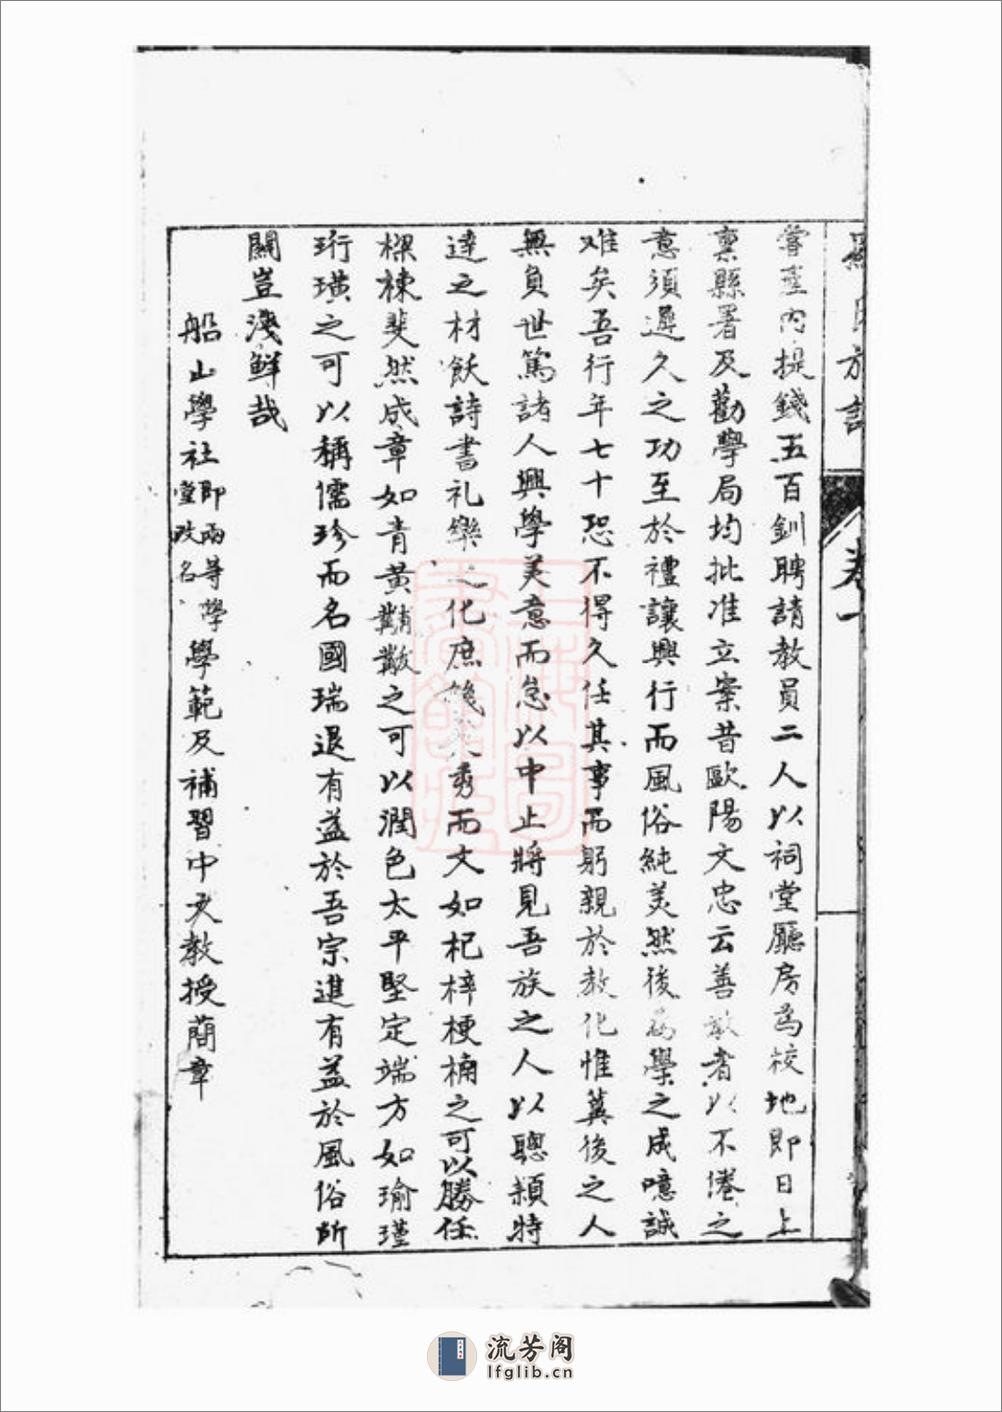 嘗內提錢五百釧聘請教員二人以祠堂廳房為校地即日上
稟縣署及勸學局均批准立案昔歐陽文忠云善教者以不倦之
意須遲久之功至於禮讓興行而風俗純美然後為學之成噫誠
难矣吾行年七十恐不得久任其事而躬親於教化惟冀後之人
無負世篤諸人興學美意而怠以中止將見吾族之人以聰穎特
達之材飫詩書礼樂之化庶幾秀而文如杞梓梗楠之可以勝任
樑棟斐然成章如青黃黼黻之可以潤色太平堅定端方如瑜瑾
珩璜之可以稱儒珍而名國瑞退有益於吾宗進有益於風俗所
關豈淺鮮哉
船山學社即兩等學堂改名學範及補習中文教授簡章
卷一
流芳阁
lfglib.cn